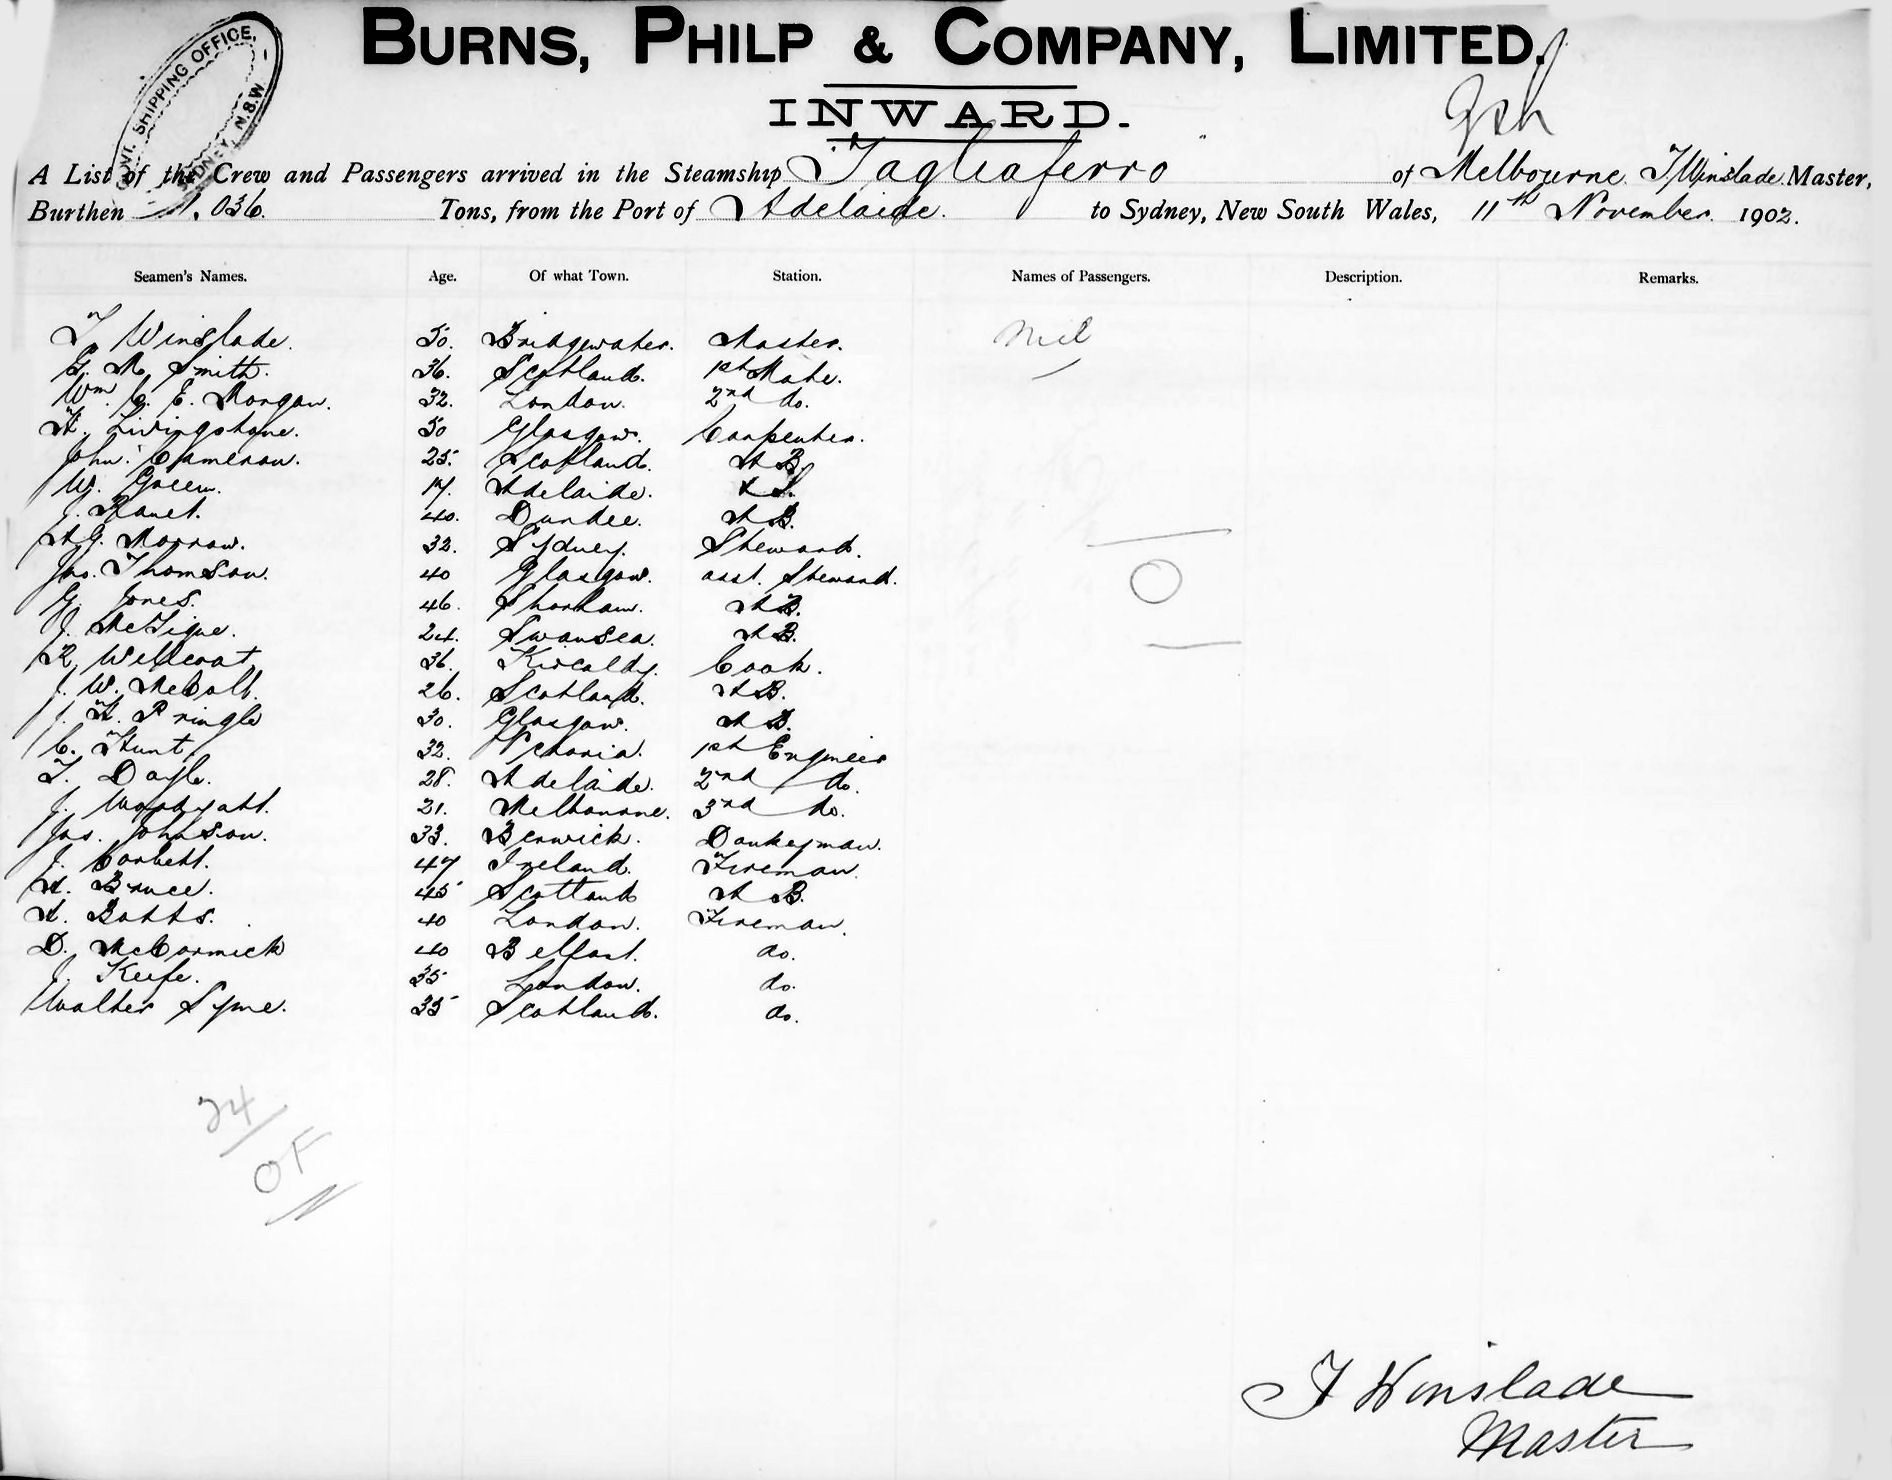 GOVT. SHIPPING OFFICE, SYDNEY, N.S.W.
BURNS, PHILP & COMPANY, LIMITED.
INWARD.
A List of the Crew and Passengers arrived in the Steamship Tagliaferro of Melbourne. T Winslade Master,
Burthen 1,036. Tons, from the Port of Adelaide. to Sydney, New South Wales, 11th November 1902.
Seamen's Names. Age. Of what Town. Station. Names of Passengers. Description. Remarks.
T Winslade. 50. Bridgewater. Master. Nil
G. M. Smith. 36. Scotland. 1st Mate.
Wm. C. E. Morgan. 32. London. 2nd do.
A. Livingstone. 50 Glasgow. Carpenter.
John Cameron. 25. Scotland. AB
W. Green. 17. Adelaide.
J. 40. Dundee. AB.
A.G. Morrow. 32. Sydney. Steward.
Jas. Thomson. 40 Glasgow. asst. Steward. O
G. Jones. 46. Shoreham. AB.
J. McTigue. 24. Swansea. AB.
R 36. Kircaldy. Cook.
J. W. 26. Scotland. AB.
J. H. Pringle 30. Glasgow. AB.
C. Hunt. 32. Victoria. 1st Engineer
T. Doyle. 28. Adelaide. 2nd do.
J. Woodyatt. 21. Melbourne. 3rd do.
Jas. Johnson. 33. Berwick. Donkeyman.
J. Corbett. 47 Ireland. Fireman.
A. Bruce. 45 Scotland AB.
A. Botts. 40 London. Fireman.
D. McCormick 40 Belfast. do.
J. Keefe. 35 London. do.
Walter Syme. 35 Scotland. do.
24
T Winslade
Master